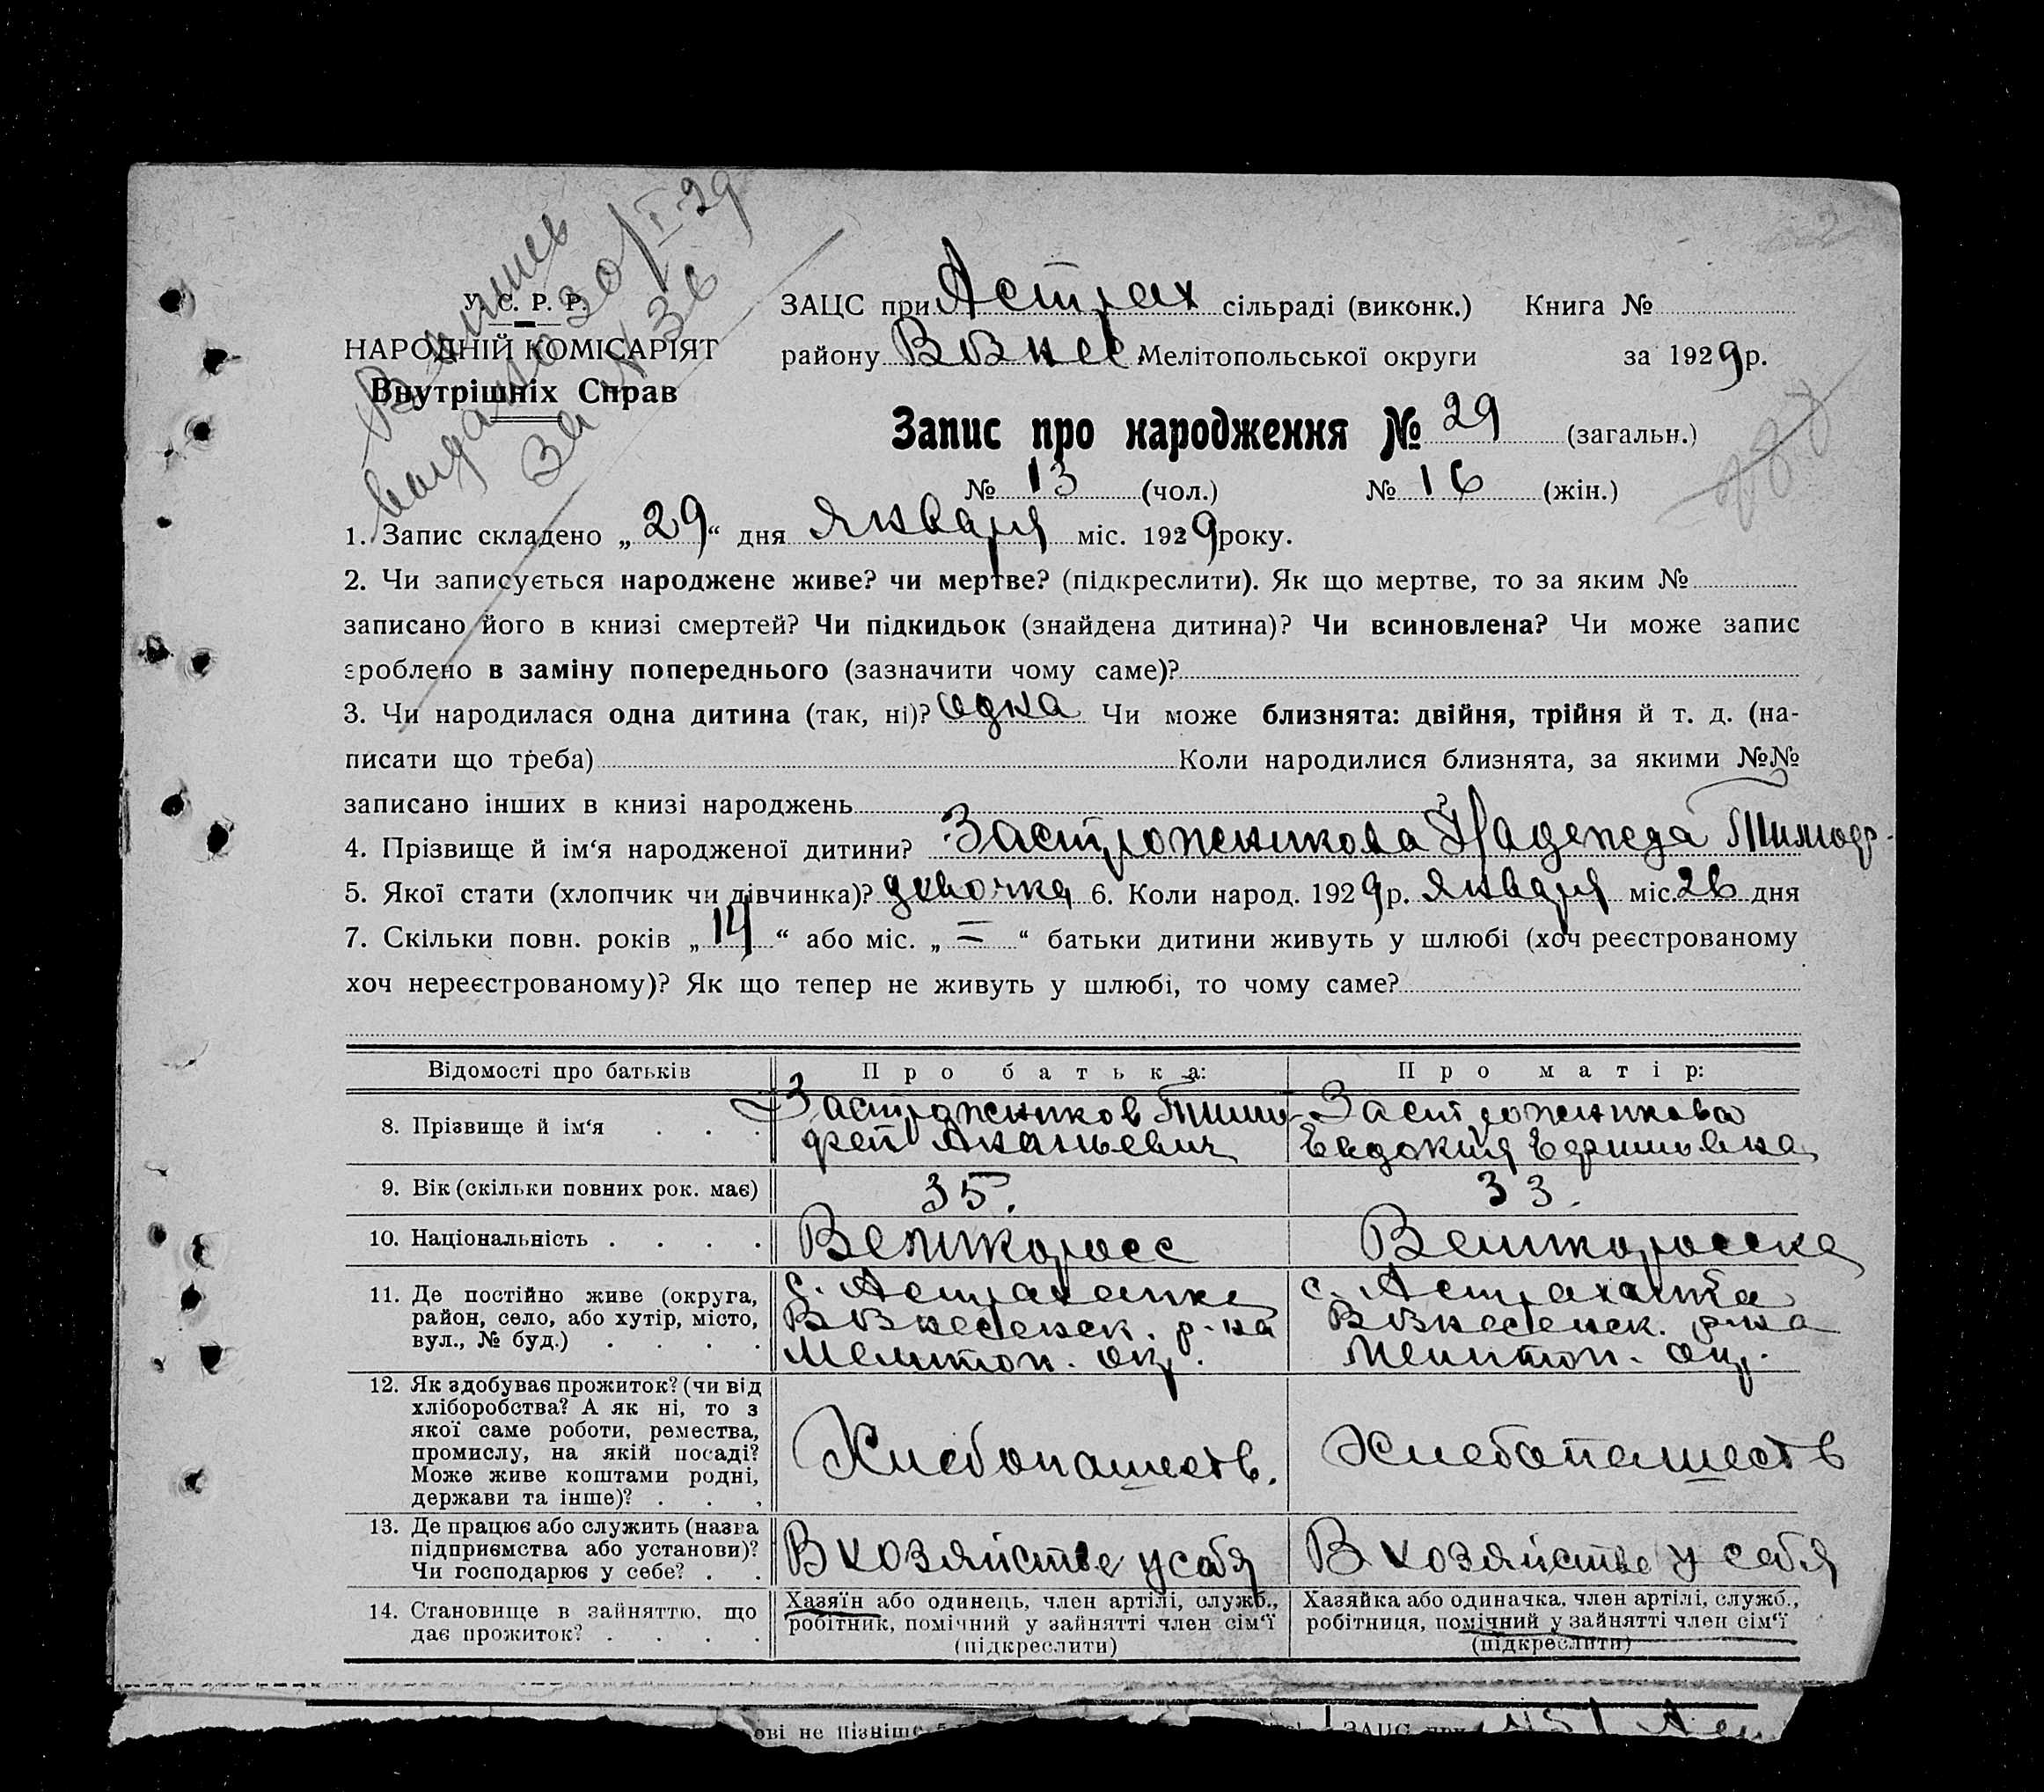 Выпись
выдана 30/I-29
За № 36
У. С. Р. Р.
НАРОДНІЙ КОМІСАРІЯТ
Внутрішніх Справ
ЗАЦС при Астрах сільраді (виконк.) Книга №
району Вознес Мелітопольської округи за 1929 р.
Запис про народження № 29 (загальн.)
№ 13 (чол.) № 16 (жін.)
1. Запис складено „29“ дня января міс. 1929 року.
2. Чи записується народжене живе? чи мертве? (підкреслити). Як що мертве, то за яким №
записано його в книзі смертей? Чи підкидьок (знайдена дитина)? Чи всиновлена? Чи може запис
зроблено в заміну попереднього (зазначити чому саме)?
3. Чи народилася одна дитина (так, ні)? одна Чи може близнята: двійня, трійня й т. д. (на-
писати що треба) Коли народилися близнята, за якими №№
записано інших в книзі народжень
4. Прізвище й ім‘я народженої дитини? Застрожникова Надежда Тимоф.
5. Якої стати (хлопчик чи дівчинка)? девочка 6. Коли народ. 1929 р. января міс. 26 дня
7. Скільки повн. років „14“ або міс. „=“ батьки дитини живуть у шлюбі (хоч реєстрованому
хоч нереєстрованому)? Як що тепер не живуть у шлюбі, то чому саме?
Відомості про батьків Про батька: Про матір:
8. Прізвище й ім‘я . . .
Застрожников Тимо-
фей Ананьевич
Застрожникова
Евдокия Ефимовна
9. Вік (скільки повних рок. має) 35. 33.
10. Національність . . . . Великоросс Великоросска
11. Де постійно живе (округа,
район, село, або хутір, місто,
вул., № буд.) . . . .
с. Астраханка
Вознесенск. р-на
Мелитоп. окр.
с. Астраханка
Вознесенск. р-на
Мелитоп. окр.
12. Як здобуває прожиток? (чи від
хліборобства? А як ні, то з
якої саме роботи, ремества,
промислу, на якій посаді?
Може живе коштами родні,
держави та інше)? . . .
Хлебопашеств.
Хлебопашеств
13. Де працює або служить (назва
підприємства або установи)?
Чи господарює у себе? . .
В хозяйстве у себя
В хозяйстве у себя
14. Становище в зайняттю, що
дає прожиток? . . . .
Хазяїн або одинець, член артілі, служб.,
робітник, помічний у зайнятті член сім‘ї
(підкреслити)
Хазяйка або одиначка, член артілі, служб.,
робітниця, помічний у зайнятті член сім‘ї
(підкреслити)
ові не пізніше 5 ЗАЦС при